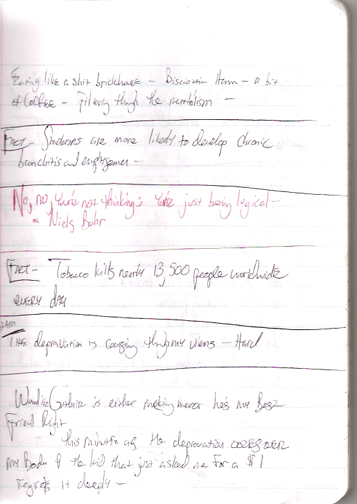 Eating like a shit brickhouse – – a bit
of Coffee – Filtering through the metabolism –
FACT – Smokers are more likely to develop chronic
bronchitis and emphysema –
No, no, you're not thinking; you're just being logical –
- Niels Bohr
FACT – Tobacco kills nearly 13,500 people worldwide
every day
The deprivation is coursing through my veins – Hard
Woodie Guthrie is either making me or he's my Best
Friend Right
this minute as the deprivation over
my Body & the kid that just asked me For a $1
regrets it deeply –